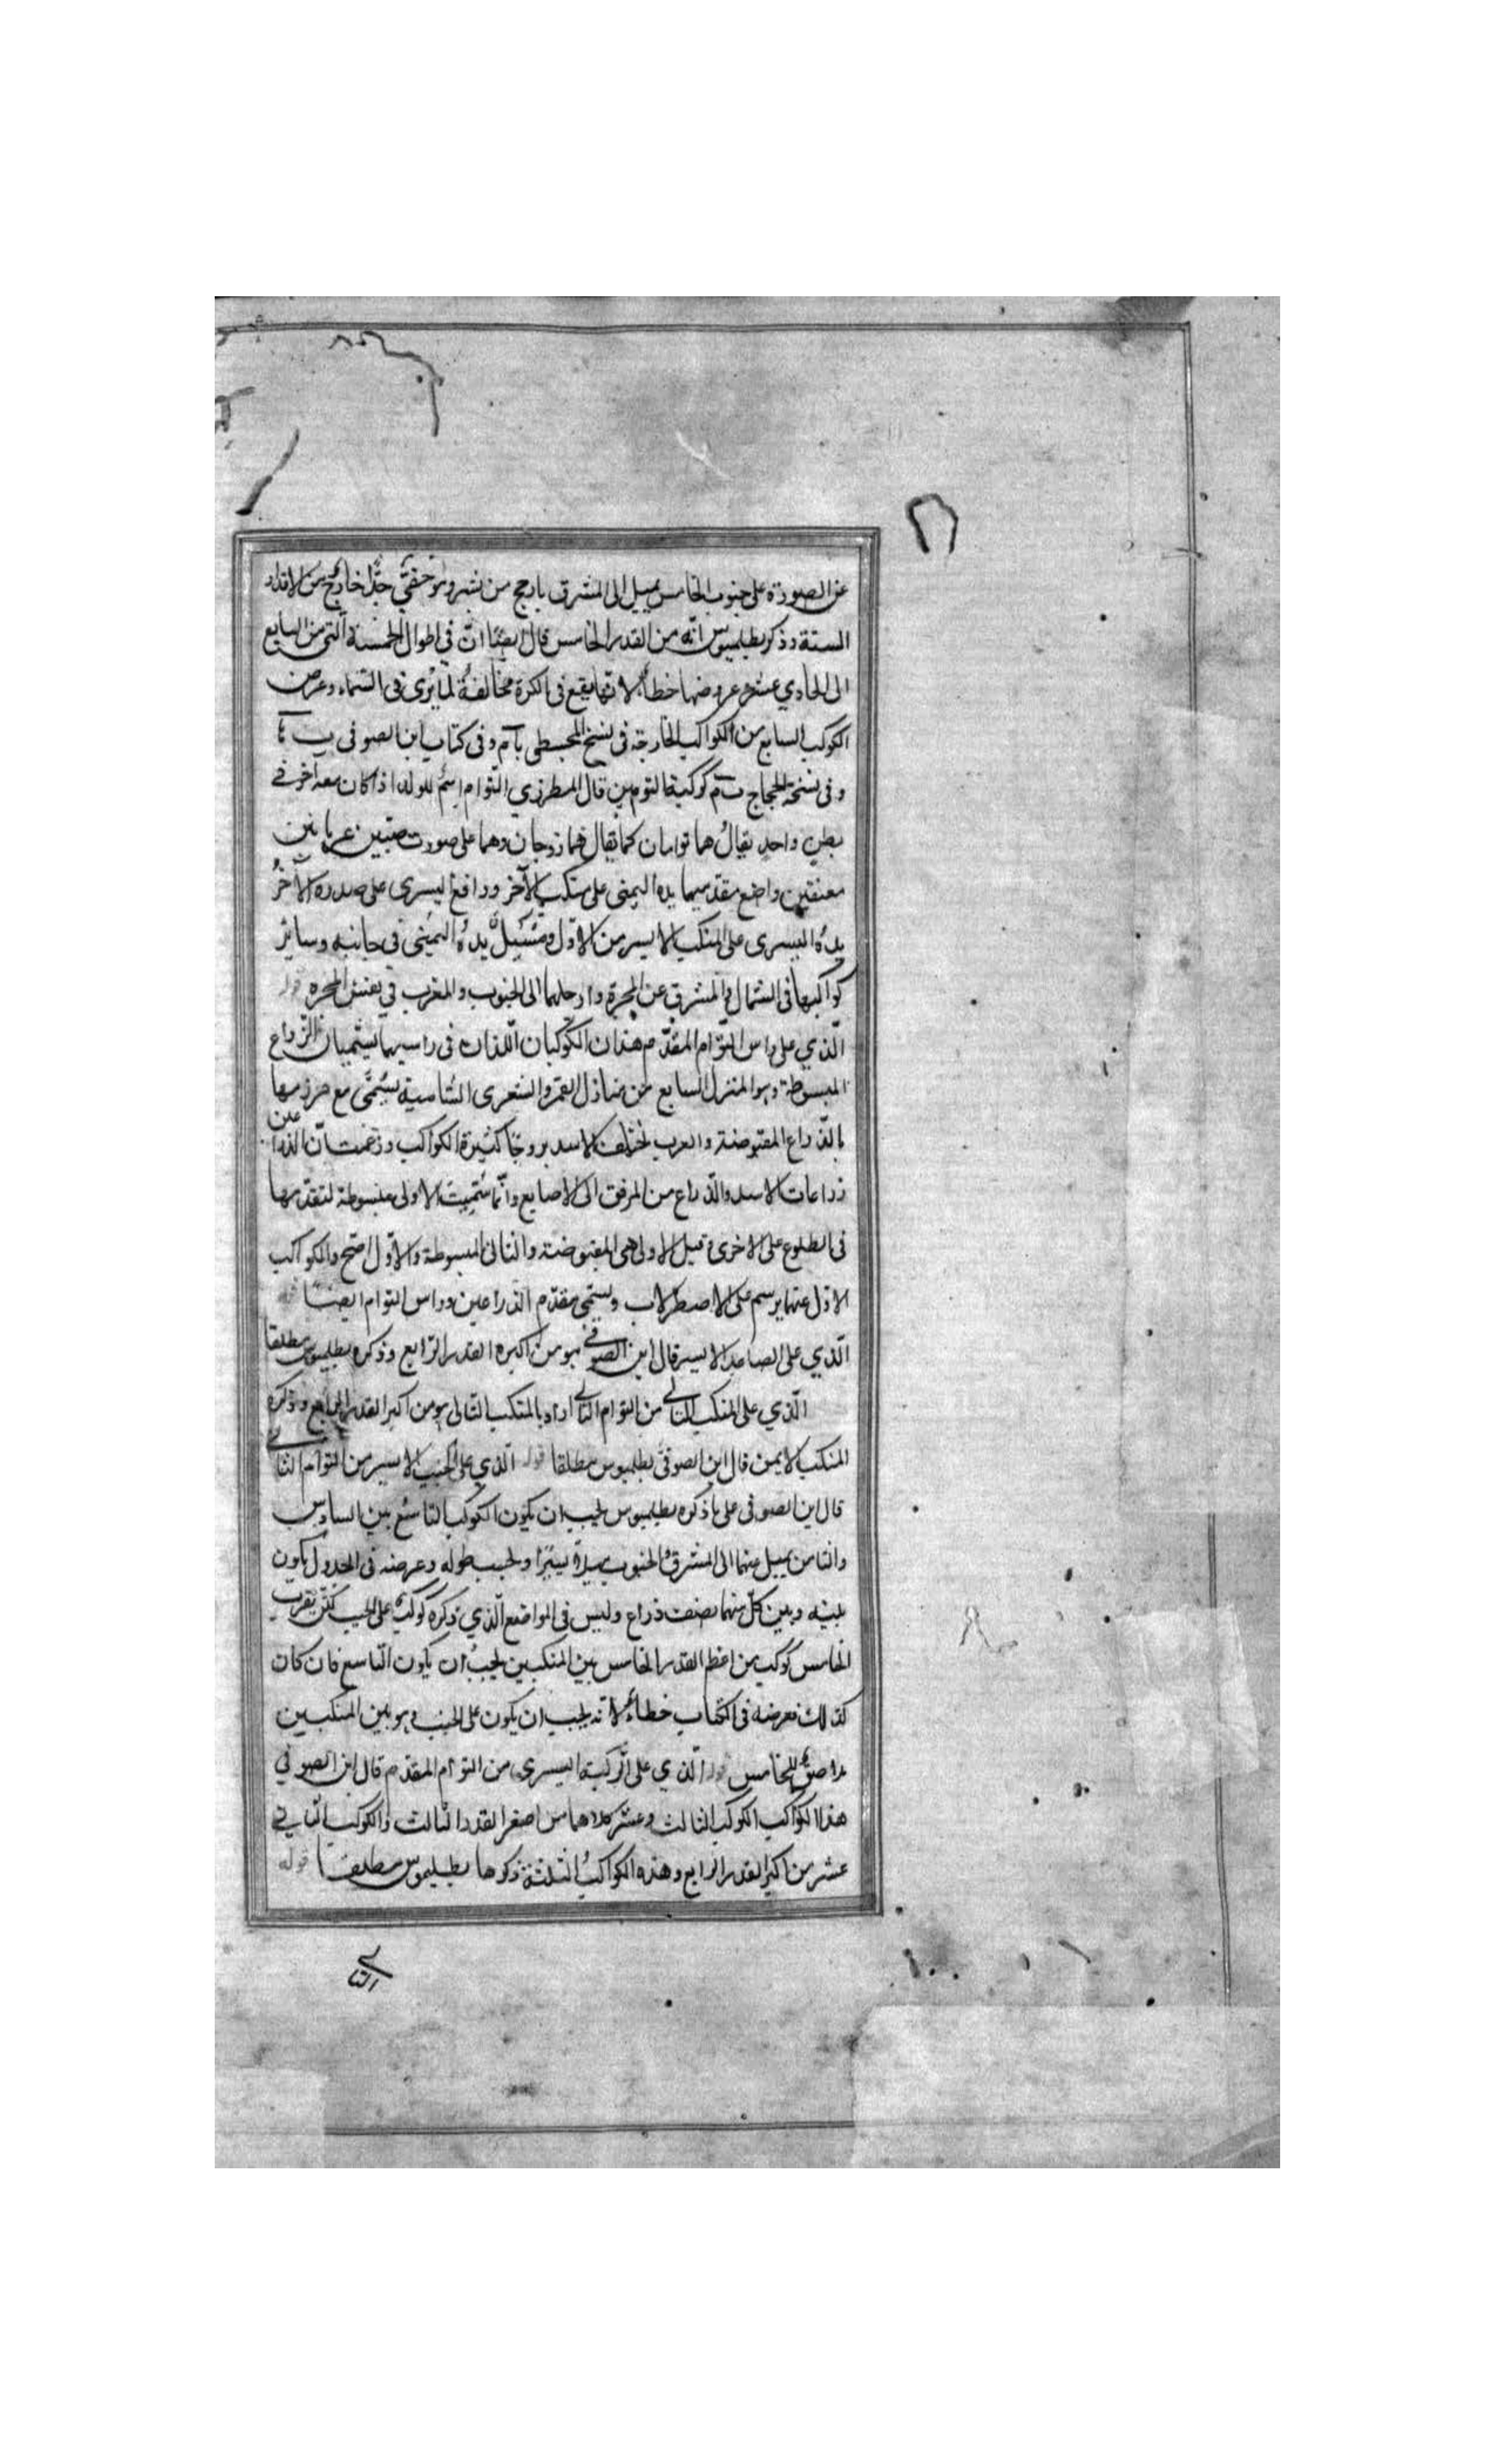 عن الصورة على جنوب الخامس يميل الى المشرق بارجح من شبر وهو خفىّ جدّا خارج من الاقدار
الستة وذكر بطلميوس انّه من القدر الخامس قال ايضًا انّ فى اطوال الخمسة التى من السابع
الى الحادي عشر وعروضها خطأ لانها يقع فى الكرة مخالفةً لما يُرى فى السماء وعرض
الكوكب السابع من الكواكب الخارجة فى نسخ المجسطى بآ م وفى كتاب ابن الصوفى ب
و فى نسخة الحجاج ب م كوكبة التومين قال المطرزي التوام اسمٌ للولد اذا كان معه آخر فے
بطنٍ واحدٍ يقالُ هما توامان كما يقال هما زوجان وهما على صورت صبيين عريانين
معتنقين واضع مقدّمهما يده اليمنى على منكب الآخر ورافع اليسرى على صدره الآخرُ
يدهُ اليسرى على المنكب الايسر من الاوّل ومُسْبِلٌ يدهُ اليمنى فى جانبه وسائر
كواكبها فى الشمال والمشرق عن المجرة وارجلهما الى الجنوب والمغرب فى نفس المجره قوله
الّذي على راس التوّام المقدّم هذان الكوكبان اللذان فى راسيهما يسّميان الذّراع
المبسوطة وهو المنزل السابع من منازل القمر والشعرى الشامية يُسمَّى مع مرزمها
بالذّراع المقبوضة والعرب الاسد بروجًا كثيرة الكواكب وزعمت انّ الذراعين
ذراعات الاسد والذّراع من المرفق الى الاصابع وانّما سُمّيت الاولى مبسوطة لتقدّمها
فى الطلوع على الاخرى وقيل الاولى هى المقبوضة والثانى المبسوطة والاوّل اصّح والكواكب
الاوّل عنهما يرسم على الاصطرلاب ويسّمى مقدّم الذراعين وراس التوام ايضًا قوله
الّذي على الساعد الايسر قال ابن الصوفے هو من اكبره القدر الرّابع وذكره بطلميوس مطلقا
الّذي على المنكب التالے من التوام التالے اراد بالمنكب التالى هو من اكبر القدر الرابع وذكره
المنكب الايمن قال ابن الصوفىّ بطلميوس مطلقا قوله الّذي على الجنب الايسر من التوام التالے
قال ابن الصوفى على ما ذكره بطلميوس يجب ان يكون الكوكب التاسع بين السادس
والثامن يميل عنهما الى المشرق والجنوب ميلاً يسيرًا وبحسب طوله وعرضه فى الجدول يكون
بينه وبين كلّ منهما نصف ذراع وليس فى المواضع الّذي ذكره كوكبٌ على الجنب لكن بقرب
الخامس كوكب من اعظم القدر الخامس بين المنكبين يجبُ ان يكون التاسع فان كان
كذلك فعرضه فى الكتاب خطاءٌ لانه يجب ان يكون على الجنب وهو بين المنكبين
ملاصقٌ للخامس قوله الّذي على الرّكبة اليسرى من التوام المقدّم قال ابن الصوفي
هذا الكواكب الكوكب الثالث وعشر كلاهما من اصغر القدر الثالث والكوكب الثاني
عشر من اكبر القدر الرابع وهذه الكواكبُ الثلثة ذكرها بطلميوس مطلقا قوله
التالے